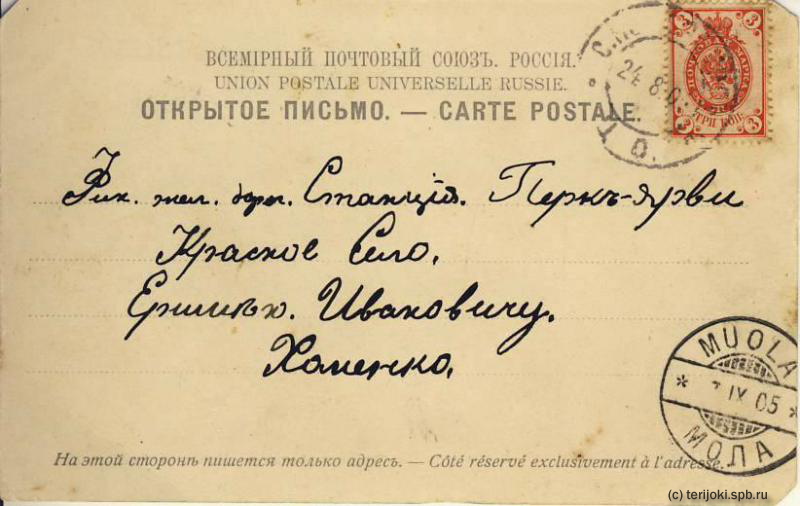 ВСЕМІРНЫЙ ПОЧТОВЫЙ СОЮЗЪ. РОССІЯ.
UNION POSTALE UNIVERSELLE RUSSIE.
ОТКРЫТОЕ ПИСЬМО. — CARTE POSTALE.
3 3
ПОЧТОВАЯ МАРКА
ТРИ КОП.
3 3
24 8 0
Фин. жел. дорог. Станція. Перкъ-ярви
Красное Село,
Ивановичу.
Хоменко,
MUOLA
IX 05
МОЛА
На этой сторонѣ пишется только адресъ. — Côté réservé exclusivement à l'adresse.
(c) terijoki.spb.ru